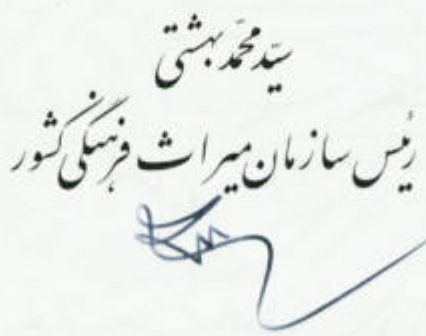 سیّد محمّد بهشتی
رئیس سازمان میراث فرهنگی کشور